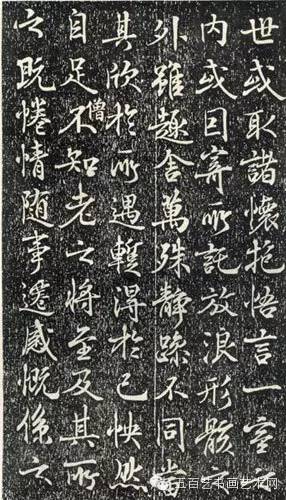 世或取諸懷抱悟言一室之
内或因寄所託放浪形骸之
外雖趣舍萬殊靜躁不同當
其欣於所遇暫得於己怏然
僧
自足不知老之將至及其所
之既惓情隨事遷感慨係之
五百艺书画艺术网